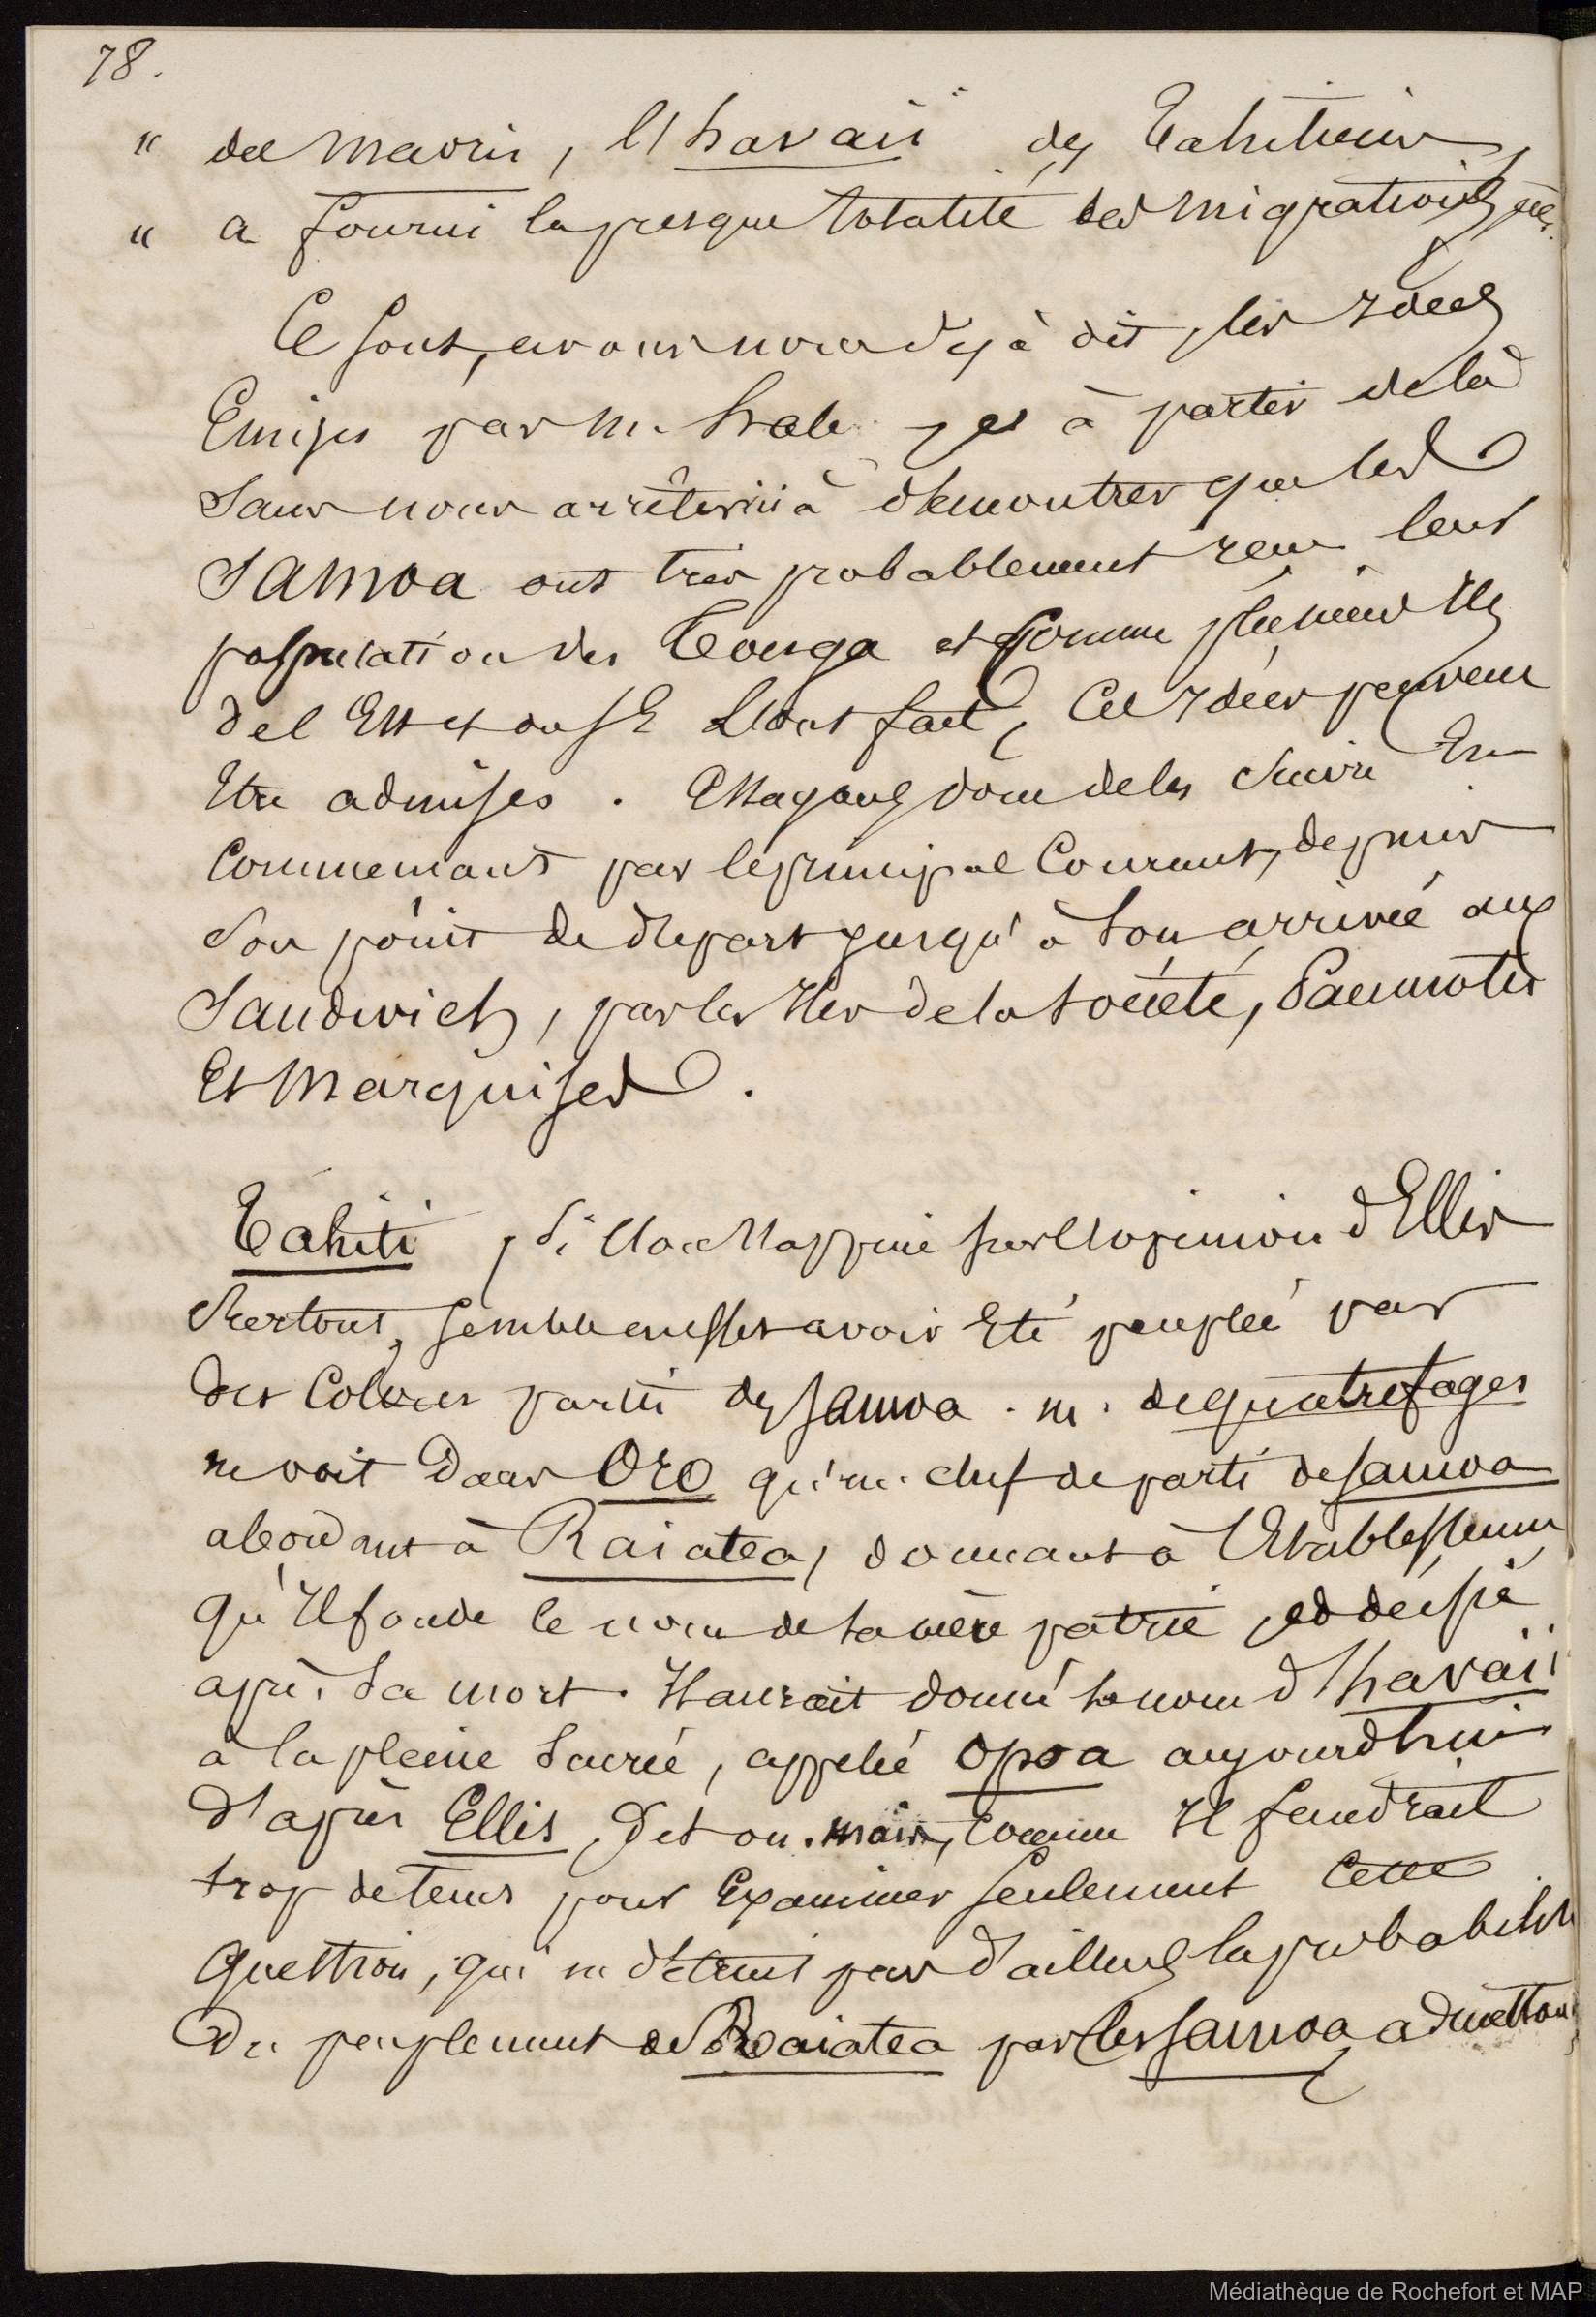 78.
" des Maoris, l'havaii des Tahitiens,
" a fourni la presque totalité des migrations
Ce sont, avons nous déjà dit, les Idées
Emises par M. Hale, et à partir de là
Sans nous arrêter ici à démontrer que les
Samoa ont très probablement reçu leur
population des Tonga et comme plusieurs Iles
de l'Est et ouest l'ont fait, Ces Idées peuvent
Etre admises. Essayons donc de les suivre En
Commençant par le principal Courant, depuis
son point de départ jusqu'à son arrivée aux
Sandwich, par les Iles de la Société, Paumotus
Et Marquises.
Tahiti, si l'on s'appuie sur l'opinion d'Ellis
Surtout, semble en effet avoir Eté peuplée par
des Colonies parties des Samoa. M. de quatrefages
ne voit dans Oro qu'un chef de parti de Samoa
abordant à Raiatea, donnant à l'Etablissement
qu'Il fonde le nom de sa mère patrie, et déifié
après sa mort. Il aurait donné le nom d'havaii
à la pleine Sacrée, appelée Opoa aujourd'hui
d'après Ellis, dit on. mais, comme Il faudrait
trop de tems pour Examiner seulement Cette
question, qui ne détruit pas d'ailleurs la probabilité
Du peuplement de Raiatea par les Samoa, admettons
Médiathèque de Rochefort et MAP